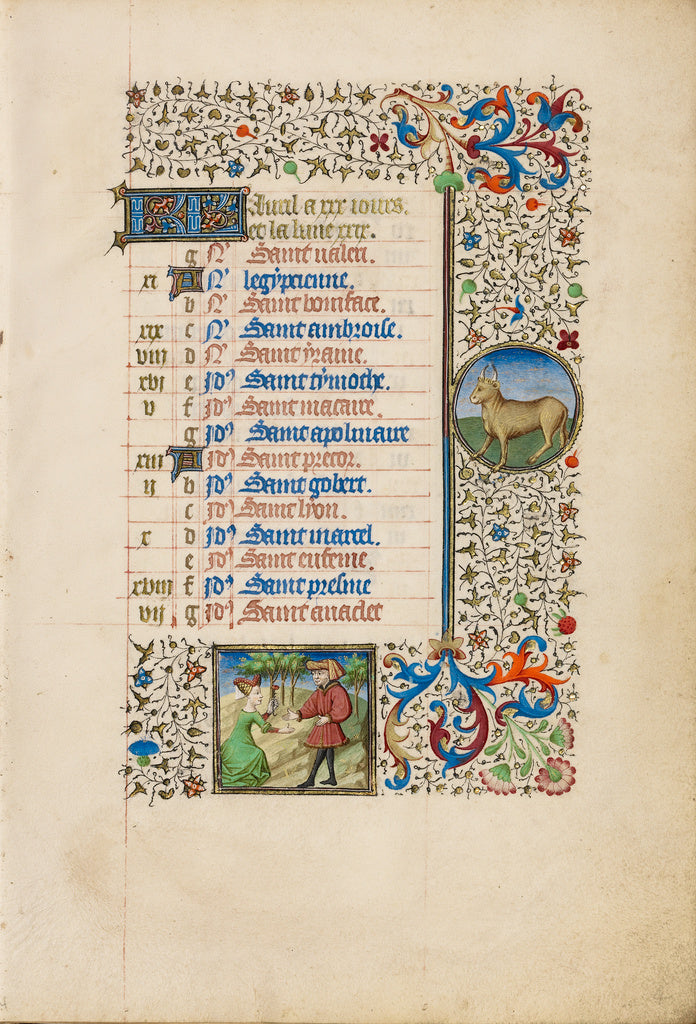 Auril a xxx iours.
et la lune xxix.
g N' Saint ualeri.
xi A N' legypcienne.
b N' Saint boniface.
xix c N' Saint ambroise.
viii d N' Saint yraine.
xvi e Id' Saint tymothe.
v f Id' Saint macaire.
g Id' Saint apolinaire
xiii A Id' Saint precor.
ii b Id' Saint gobert.
c Id' Saint lyon.
x d Id' Saint marcel.
e Id' Saint eufeme.
xviii f Id' Saint presme
vii g Id' Saint anaclet